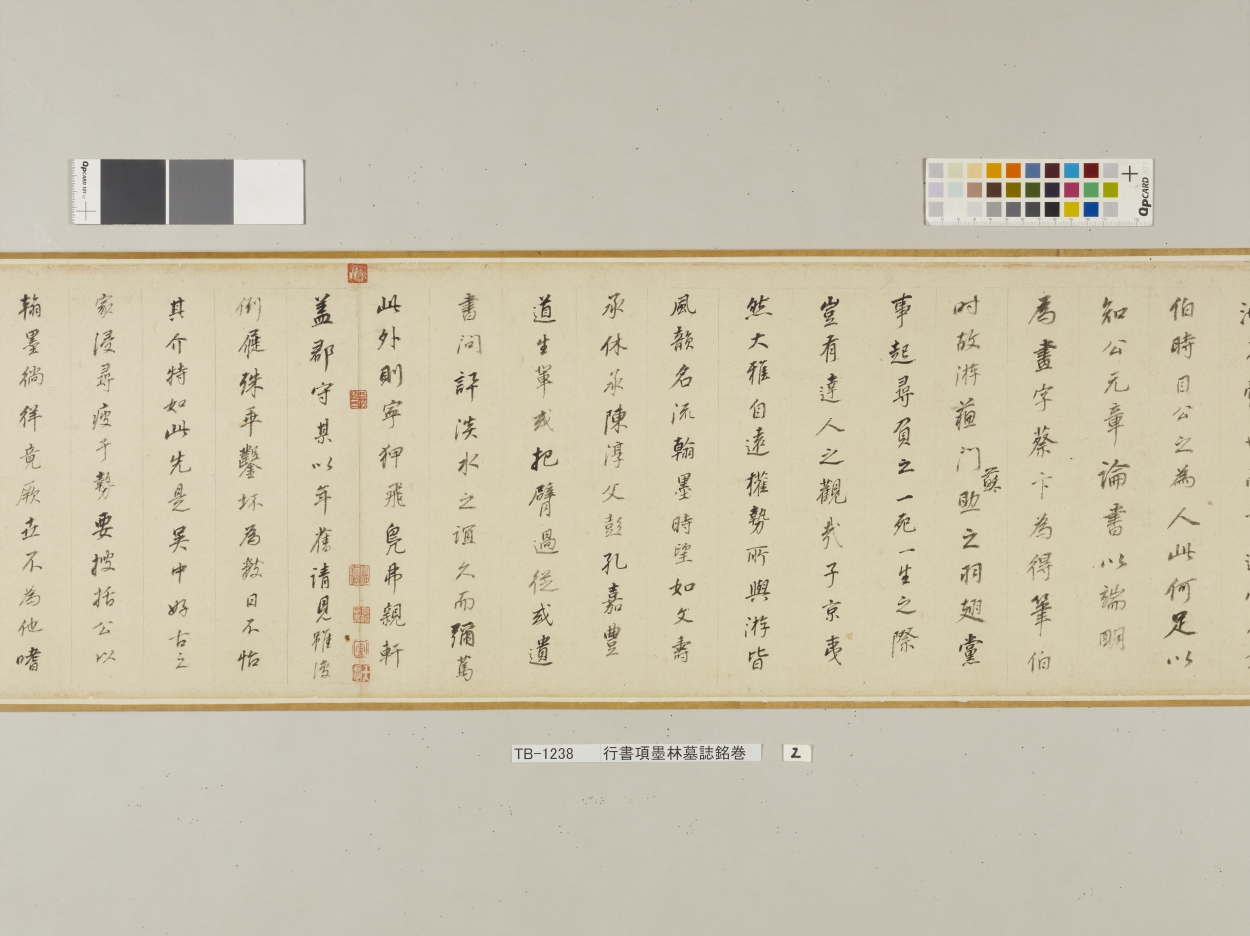 伯時目公之為人此何足以
知公元章論書以端明
為畫字蔡卞為得筆伯
时故游蘓门助之羽翅黨
蘇
事起尋負之一死一生之際
豈有達人之觀哉子京夷
然大雅自遠權勢所與游皆
風韻名流翰墨時望如文壽
承休承陳淳父彭孔嘉豐
道生軰或把臂過從或遺
書问評淡水之誼久而彌篤
此外則寧狎飛鳧弗親軒
盖郡守某以年舊請見雖
倒屣殊再鑿坏為数日不怡
其介特如此先是吴中好古之
家浸尋疲于勢要披括公以
翰墨徜徉竟厥世不為他嗜
QpCARD
QpCARD
TB-1238 行書項墨林墓誌銘巻
2